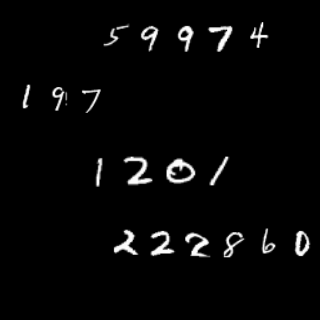 59974
197
1201
222860